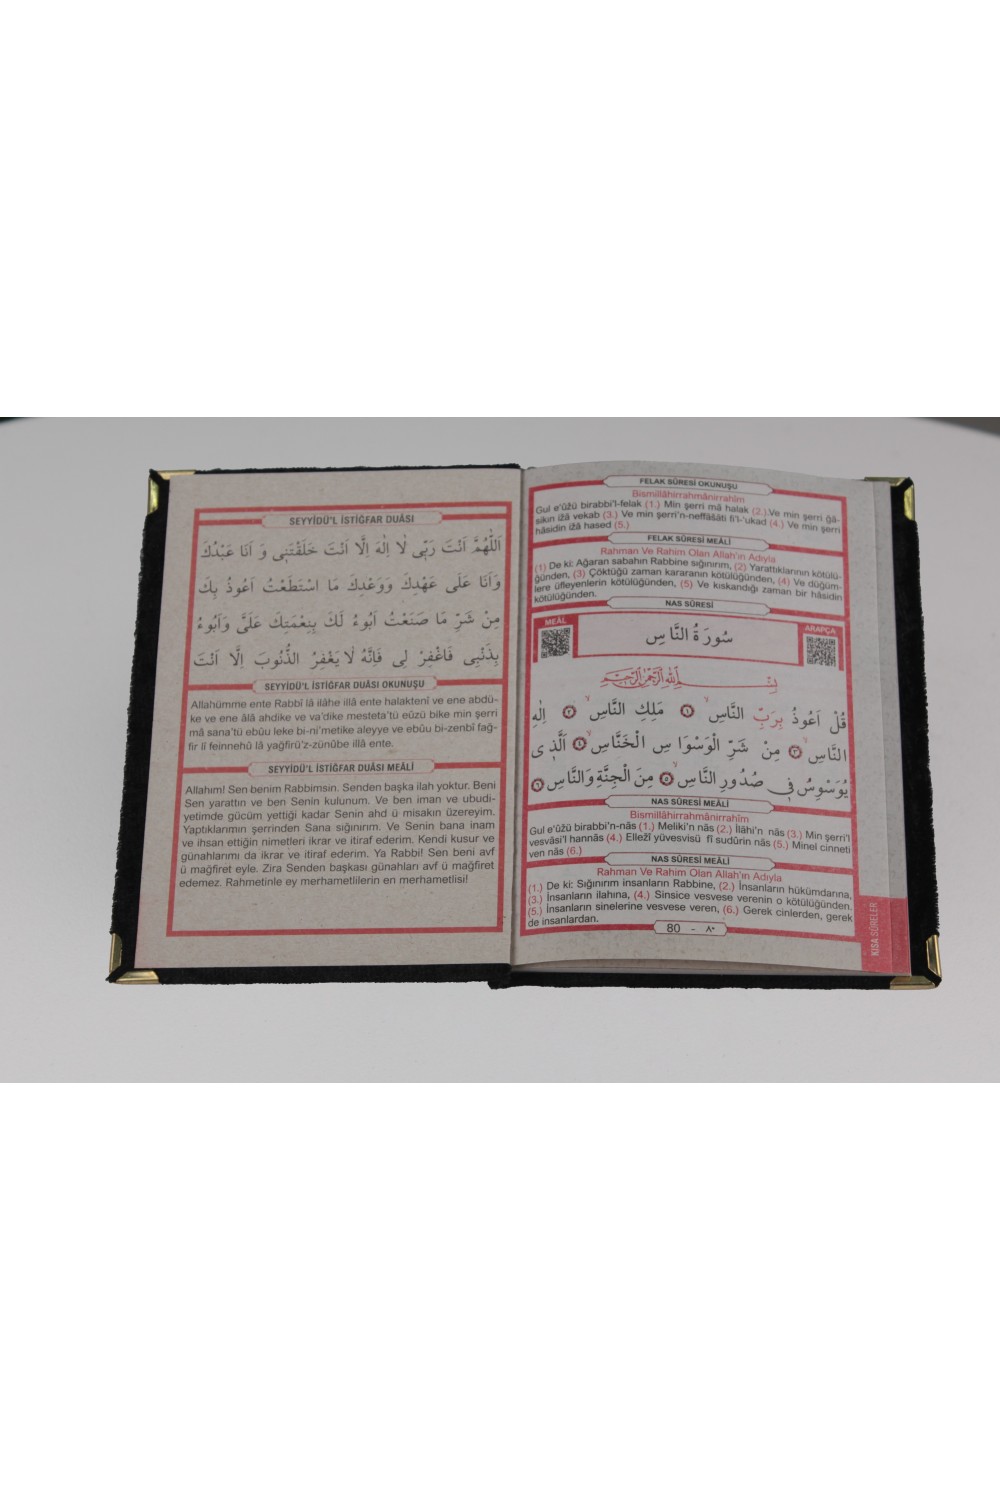 SEYYİDÜ'L İSTİĞFAR DUÂSI
اَللّٰهُمَّ اَنْتَ رَبّٖى لَا اِلٰهَ اِلَّا اَنْتَ خَلَقْتَنٖى وَ اَنَا عَبْدُكَ
وَاَنَا عَلٰى عَهْدِكَ وَوَعْدِكَ مَا اسْتَطَعْتُ اَعُوذُ بِكَ
مِنْ شَرِّ مَا صَنَعْتُ اَبُوءُ لَكَ بِنِعْمَتِكَ عَلَىَّ وَاَبُوءُ
بِذَنْبٖى فَاغْفِرْ لٖى فَاِنَّهُ لَا يَغْفِرُ الذُّنُوبَ اِلَّا اَنْتَ
SEYYİDÜ'L İSTİĞFAR DUÂSI OKUNUŞU
Allahümme ente Rabbî lâ ilâhe illâ ente halaktenî ve ene abdü-
ke ve ene âlâ ahdike ve va'dike mesteta'tü eûzü bike min şerri
mâ sana'tü ebûu leke bi-ni'metike aleyye ve ebûu bi-zenbî fağ-
fir lî feinnehû lâ yağfirü'z-zünûbe illâ ente.
SEYYİDÜ'L İSTİĞFAR DUÂSI MEÂLİ
Allahım! Sen benim Rabbimsin. Senden başka ilah yoktur. Beni
Sen yarattın ve ben Senin kulunum. Ve ben iman ve ubudi-
yetimde gücüm yettiği kadar Senin ahd ü misakın üzereyim.
Yaptıklarımın şerrinden Sana sığınırım. Ve Senin bana inam
ve ihsan ettiğin nimetleri ikrar ve itiraf ederim. Kendi kusur ve
günahlarımı da ikrar ve itiraf ederim. Ya Rabbi! Sen beni avf
ü mağfiret eyle. Zira Senden başkası günahları avf ü mağfiret
edemez. Rahmetinle ey merhametlilerin en merhametlisi!
FELAK SÛRESİ OKUNUŞU
Bismillâhirrahmânirrahîm
Gul e'ûzü birabbi'l-felak (1.) Min şerri mâ halak (2.).Ve min şerri ğâ-
sikın izâ vekab (3.) Ve min şerri'n-neffâsâti fi'l-'ukad (4.) Ve min şerri
hâsidin izâ hased (5.)
FELAK SÛRESİ MEÂLİ
Rahman Ve Rahim Olan Allah'ın Adıyla
(1) De ki: Ağaran sabahın Rabbine sığınırım, (2) Yarattıklarının kötülü-
ğünden, (3) Çöktüğü zaman kararanın kötülüğünden, (4) Ve düğüm-
lere üfleyenlerin kötülüğünden, (5) Ve kıskandığı zaman bir hâsidin
kötülüğünden.
NAS SÛRESİ
MEÂL
سُورَةُ النَّاسِ
ARAPÇA
بِسْمِ اللّٰهِ الرَّحْمٰنِ الرَّحٖيمِ
قُلْ اَعُوذُ بِرَبِّ النَّاسِ ۙ ﴿١﴾ مَلِكِ النَّاسِ ۙ ﴿٢﴾ اِلٰهِ
النَّاسِ ۙ ﴿٣﴾ مِنْ شَرِّ الْوَسْوَاسِ الْخَنَّاسِ ۙ ﴿٤﴾ اَلَّذٖى
يُوَسْوِسُ فٖى صُدُورِ النَّاسِ ۙ ﴿٥﴾ مِنَ الْجِنَّةِ وَالنَّاسِ ﴿٦﴾
NAS SÛRESİ MEÂLİ
Bismillâhirrahmânirrahîm
Gul e'ûzü birabbi'n-nâs (1.) Meliki'n nâs (2.) İlâhi'n nâs (3.) Min şerri'l
vesvâsi'l hannâs (4.) Ellezî yüvesvisü fî sudûrin nâs (5.) Minel cinneti
ven nâs (6.)
NAS SÛRESİ MEÂLİ
Rahman Ve Rahim Olan Allah'ın Adıyla
(1.) De ki: Sığınırım insanların Rabbine, (2.) İnsanların hükümdarına,
(3.) İnsanların ilahına, (4.) Sinsice vesvese verenin o kötülüğünden.
(5.) İnsanların sinelerine vesvese veren, (6.) Gerek cinlerden, gerek
de insanlardan.
80 - ٨٠
KISA SÛRELER